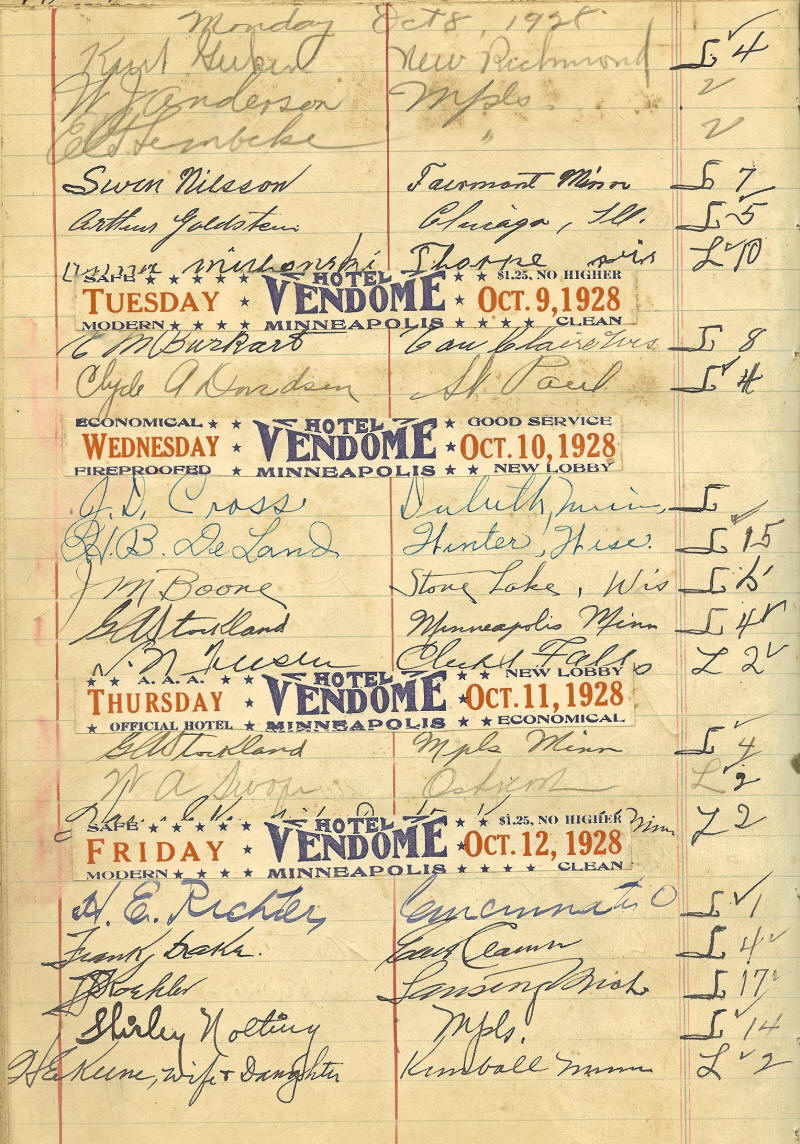 Monday Oct 8, 1928
Kurt New Richmond L 4
W J Anderson Mpls. 2
" 2
Swen Nilsson Fairmont Minn L 7
Arthur Goldstein Chicago, Ill. L 5
Thorpe Wis L 10
SAFE ★ ★ ★ ★ ★ HOTEL ★ ★ $1.25, NO HIGHER
TUESDAY ★ VENDOME ★ OCT. 9, 1928
MODERN ★ ★ ★ ★ MINNEAPOLIS ★ ★ ★ ★ CLEAN
E M Burkart Eau Claire Wis L 8
Clyde A Donidsen St Paul L 4
ECONOMICAL ★ ★ HOTEL ★ GOOD SERVICE
WEDNESDAY ★ VENDOME ★ OCT. 10, 1928
FIREPROOFED ★ MINNEAPOLIS ★ ★ NEW LOBBY
J. D. Cross Duluth, Minn, L
H. B. DeLand Winter, Wisc. L 15
J M Boone Stone Lake, Wis L
GA Stockland Minneapolis Minn L 4
Falls L 2
★ ★ A. A. A. ★ ★ HOTEL ★ ★ NEW LOBBY
THURSDAY ★ VENDOME ★ OCT. 11, 1928
★ OFFICIAL HOTEL ★ MINNEAPOLIS ★ ★ ECONOMICAL
GA Stockland Mpls Minn L 4
W A Swope Oshkosh L 2
Minn L 2
SAFE ★ ★ ★ ★ ★ HOTEL ★ ★ $1.25, NO HIGHER
FRIDAY ★ VENDOME ★ OCT. 12, 1928
MODERN ★ ★ ★ ★ MINNEAPOLIS ★ ★ ★ ★ CLEAN
H. E. Richter, Cincinnati O L 1
Frank Drake. Eau Claire L 4
Koehler Lansing Mich L 17
Shirley Nolting Mpls. L 14
H E Keene, Wife + Daughter Kimball Minn L 2